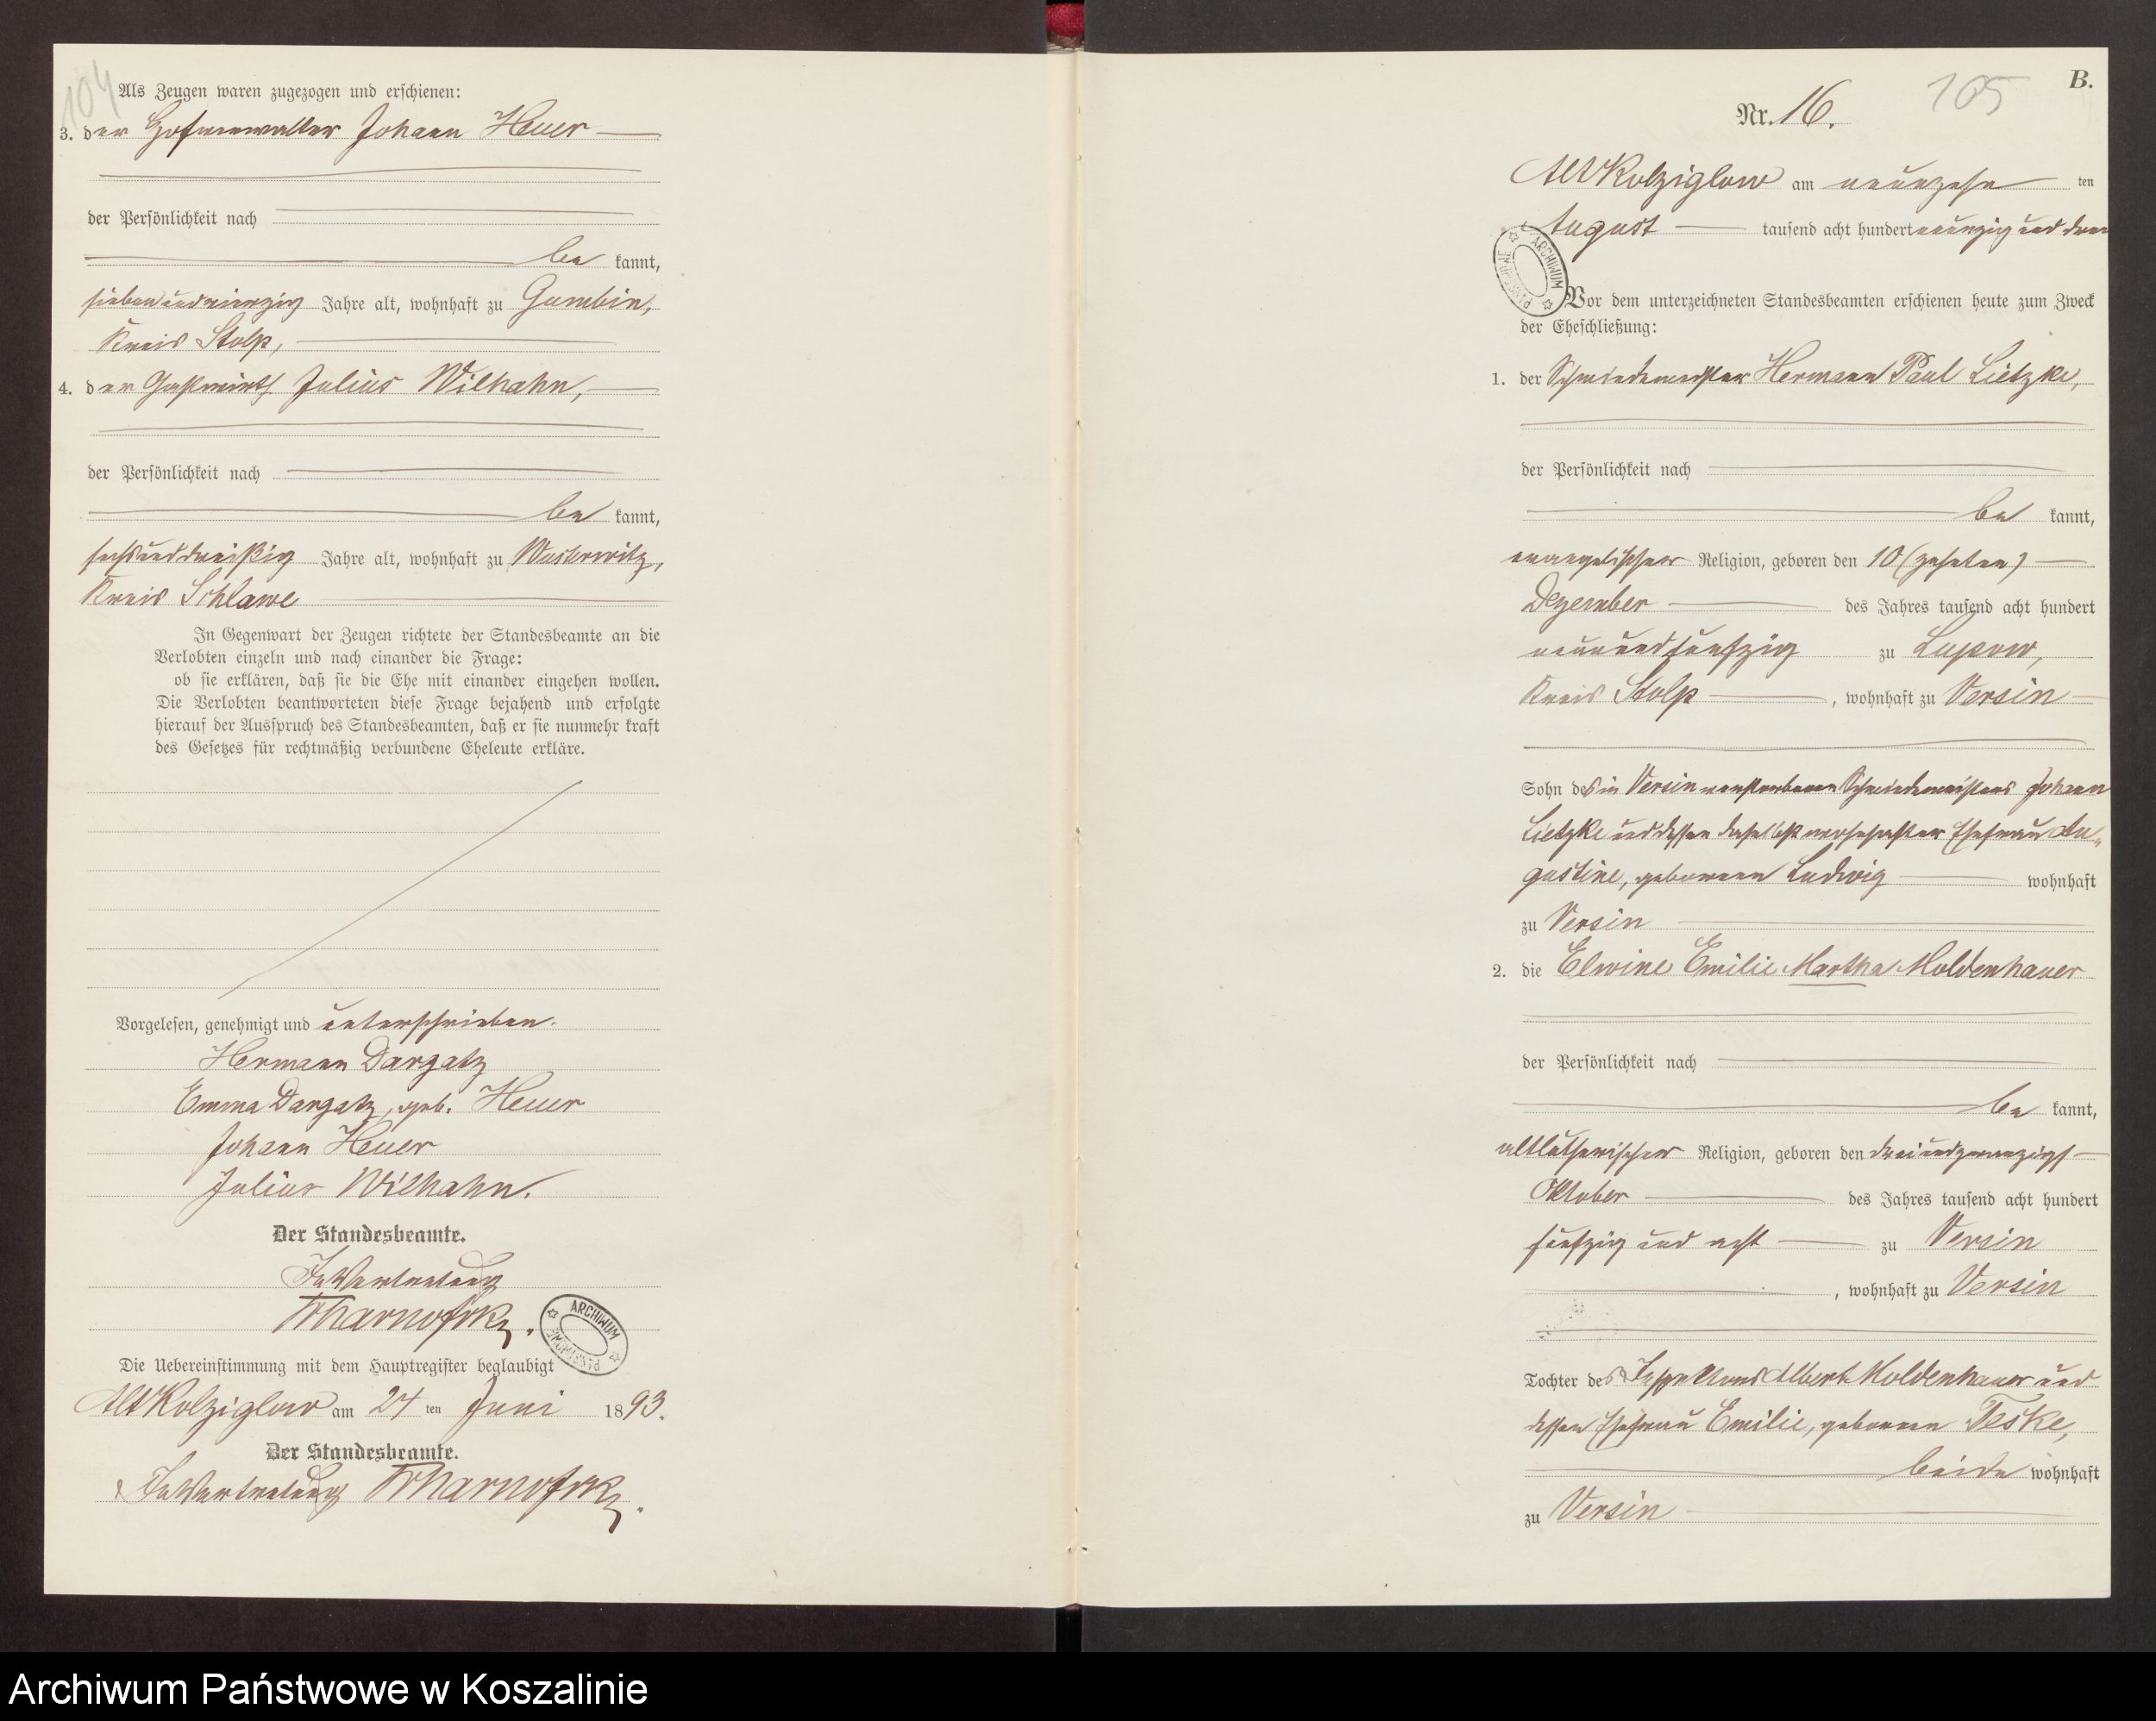 104
Als Zeugen waren zugezogen und erschienen:
3. der Hofverwalter Johann Heuer
der Persönlichkeit nach
be kannt,
siebenundvierzig Jahre alt, wohnhaft zu Gumbin,
Kreis Stolp,
4. der Gastwirth Julius Wilhahn,
der Persönlichkeit nach
be kannt,
sechsunddreißig Jahre alt, wohnhaft zu Wusterwitz,
Kreis Schlawe
In Gegenwart der Zeugen richtete der Standesbeamte an die
Verlobten einzeln und nach einander die Frage:
ob sie erklären, daß sie die Ehe mit einander eingehen wollen.
Die Verlobten beantworteten diese Frage bejahend und erfolgte
hierauf der Ausspruch des Standesbeamten, daß er sie nunmehr kraft
des Gesetzes für rechtmäßig verbundene Eheleute erkläre.
Vorgelesen, genehmigt und unterschrieben.
Hermann Dargatz
Emma Dargatz, geb. Heuer
Johann Heuer
Julius Wilhahn.
Der Standesbeamte.
In Vertretung
ARCHIWUM PAŃSTWOWE
Die Uebereinstimmung mit dem Hauptregister beglaubigt
Alt Kolziglow am 24 ten Juni 1893.
Der Standesbeamte.
In Vertretung
B.
105
Nr. 16.
Alt Kolziglow am neunzehn ten
August tausend acht hundert neunzig und drei
ARCHIWUM PAŃSTWOWE
Vor dem unterzeichneten Standesbeamten erschienen heute zum Zweck
der Eheschließung:
1. der Schmiedemeister Hermann Paul Lietzke,
der Persönlichkeit nach
be kannt,
evangelischer Religion, geboren den 10 (zehnten)
Dezember des Jahres tausend acht hundert
neunundfünfzig zu Lupow,
Kreis Stolp, wohnhaft zu Versin
Sohn des in Versin verstorbenen Schmiedemeisters Johann
Lietzke und dessen daselbst wohnhafter Ehefrau Au-
gustine, geborenen Ludwig wohnhaft
zu Versin
2. die Elwine Emilie Martha Moldenhauer
der Persönlichkeit nach
be kannt,
altlutherischer Religion, geboren den dreiundzwanzigst
Oktober des Jahres tausend acht hundert
fünfzig und acht zu Versin
, wohnhaft zu Versin
Tochter des Inspektors Albert Moldenhauer und
dessen Ehefrau Emilie, geborenen Teske,
beide wohnhaft
zu Versin
Archiwum Państwowe w Koszalinie